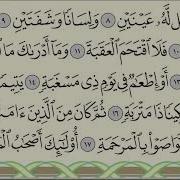 ل لَّهُۥ عَيْنَيْنِ ٨ وَلِسَانًا وَشَفَتَيْنِ ٩
١٠ فَلَا ٱقْتَحَمَ ٱلْعَقَبَةَ ١١ وَمَآ أَدْرَىٰكَ مَا
١٣ أَوْ إِطْعَٰمٌ فِى يَوْمٍ ذِى مَسْغَبَةٍ ١٤ يَتِيمً
كِينًا ذَا مَتْرَبَةٍ ١٦ ثُمَّ كَانَ مِنَ ٱلَّذِينَ ءَامَ
وَاصَوْا۟ بِٱلْمَرْحَمَةِ ١٧ أُو۟لَٰٓئِكَ أَصْحَٰبُ ٱلْ